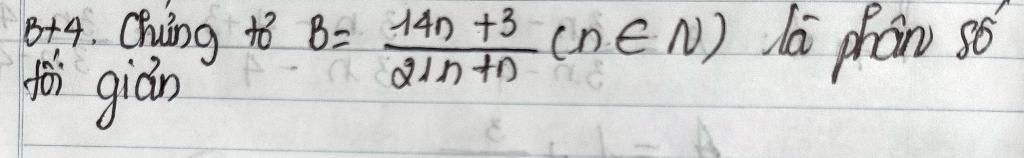 B+4. Chứng tỏ B = \frac{14n + 3}{21n + n} (n ∈ N) là phân số
tối giản